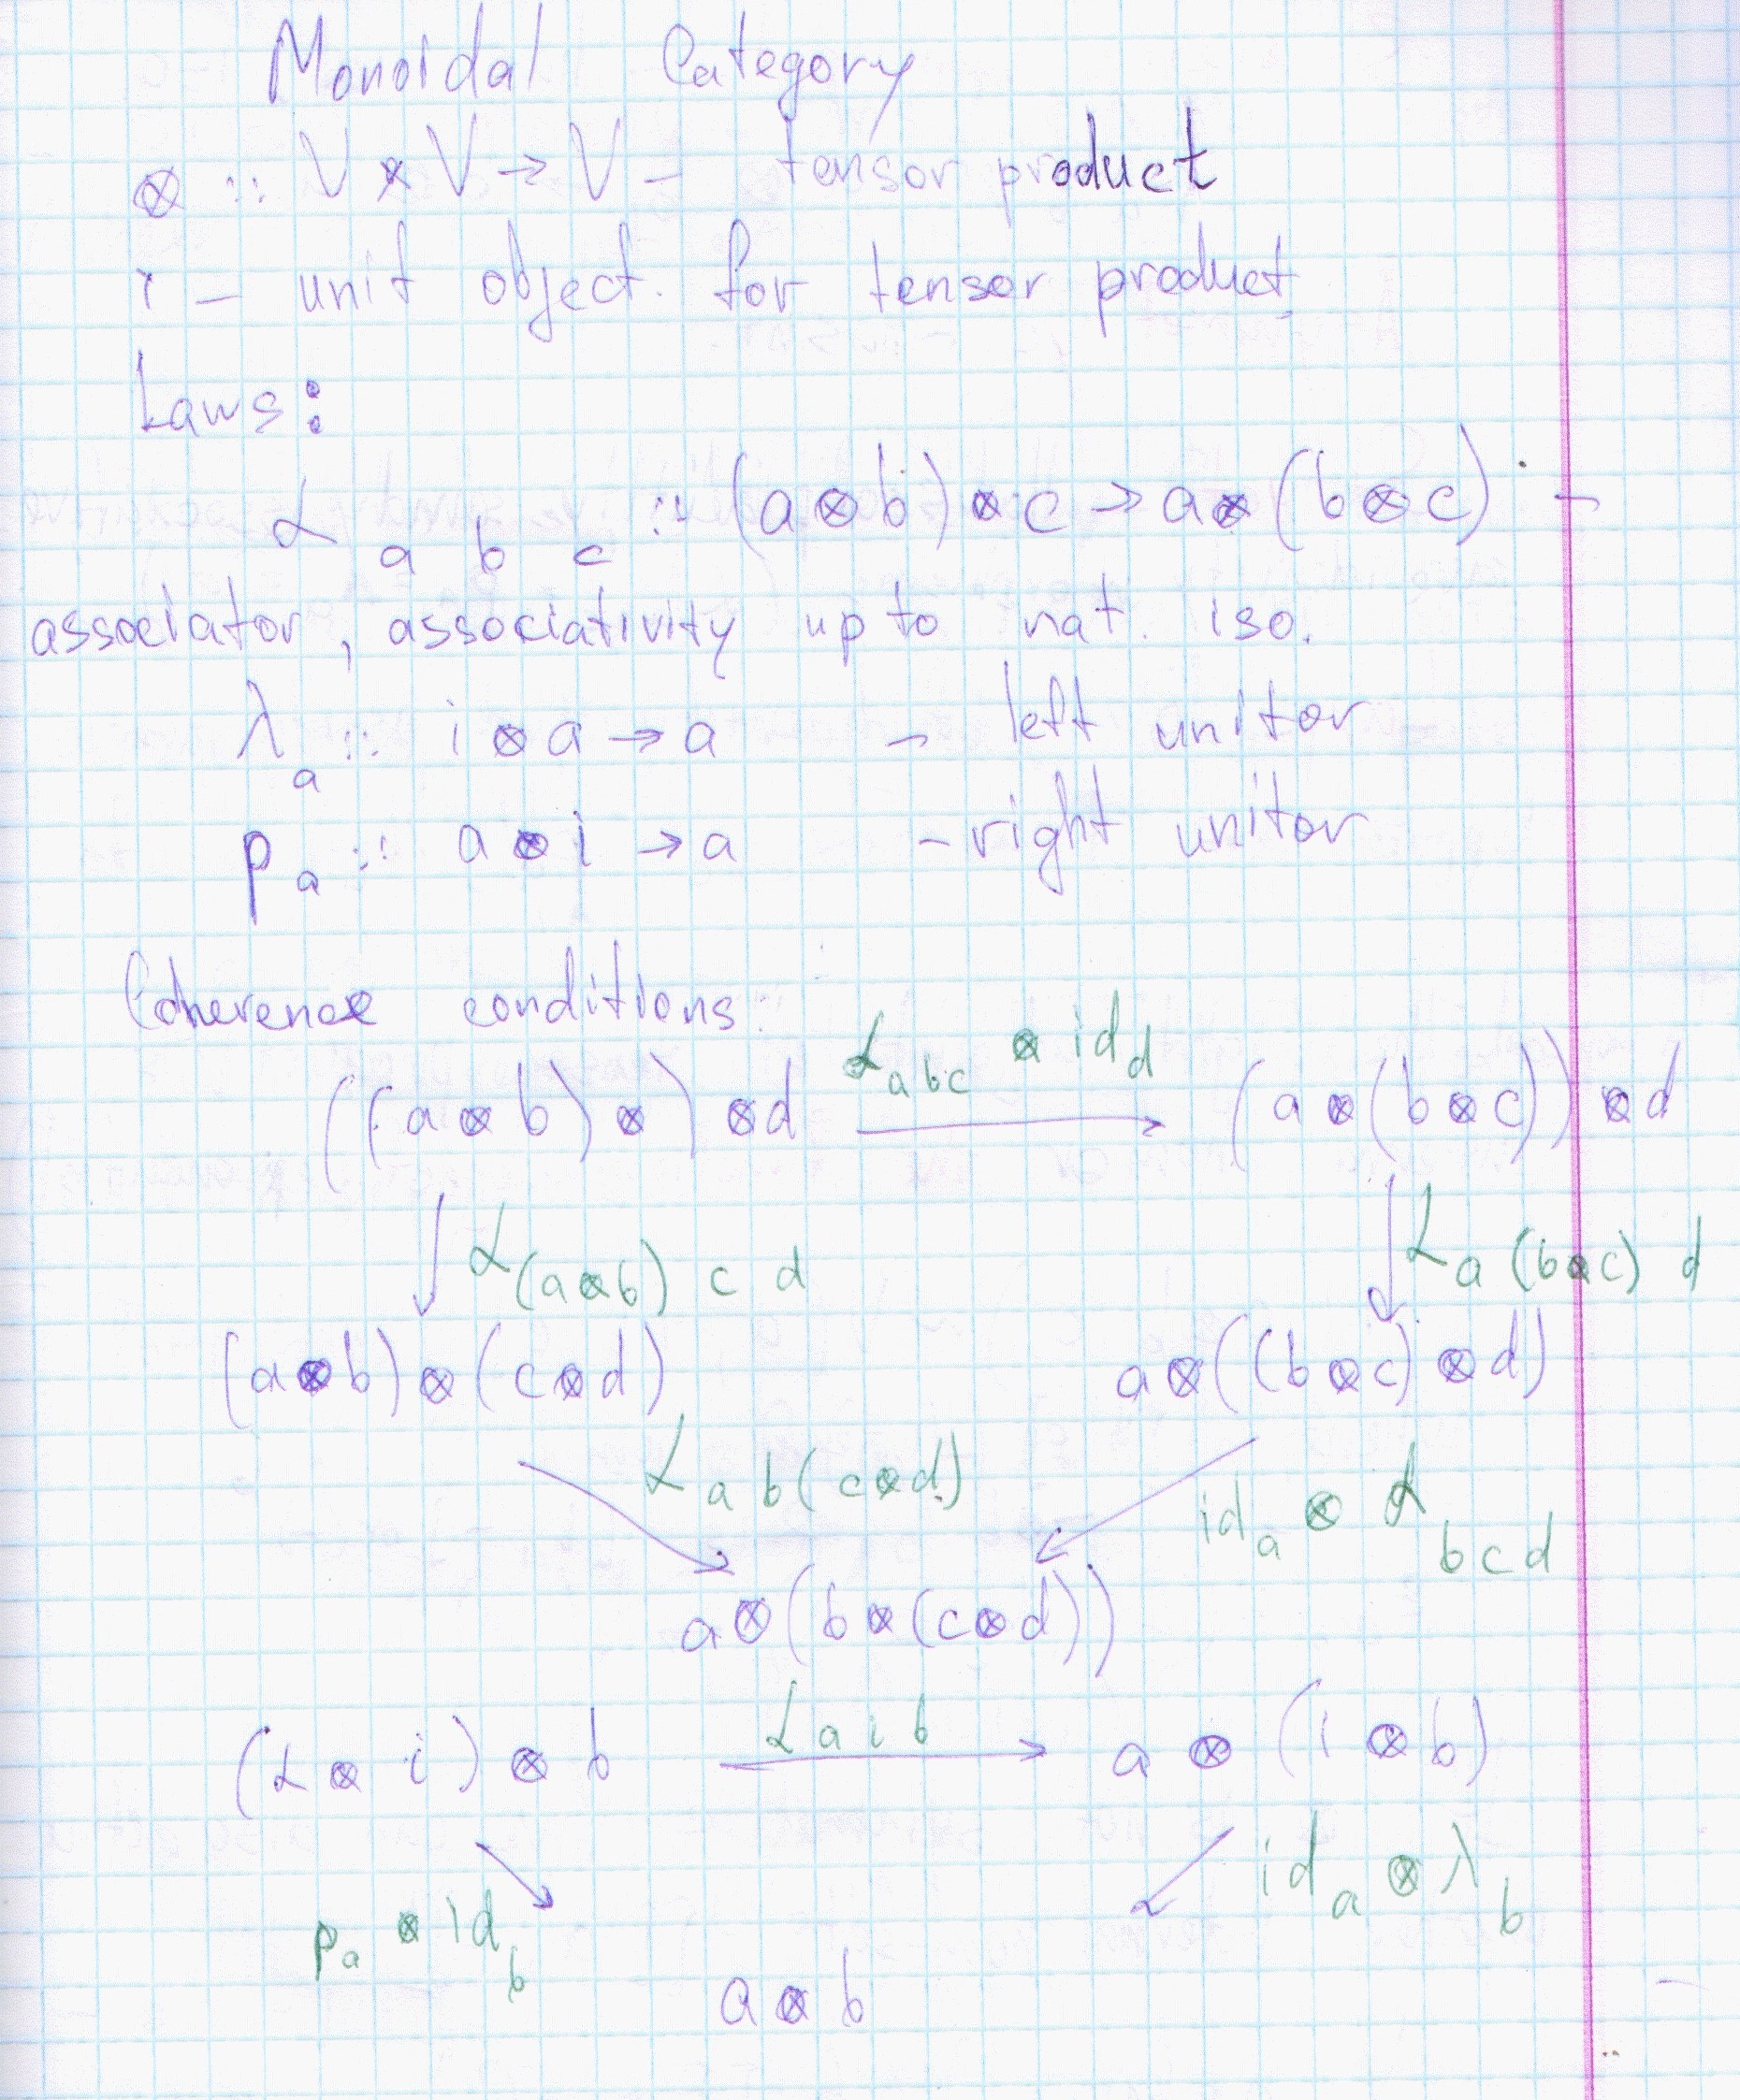 Monoidal Category
⊗ :: V × V → V – tensor product
i – unit object for tensor product
Laws:
α a b c :: (a⊗b)⊗c → a⊗(b⊗c) –
associator, associativity up to nat. iso.
λ a :: i⊗a → a – left unitor
ρ a :: a⊗i → a – right unitor
Coherence conditions:
α abc ⊗ id d
((a⊗b)⊗)⊗d → (a⊗(b⊗c))⊗d
α (a⊗b) c d α a (b⊗c) d
(a⊗b)⊗(c⊗d) a⊗((b⊗c)⊗d)
α a b (c⊗d) id a ⊗ α bcd
a⊗(b⊗(c⊗d))
α a i b
(α⊗i)⊗b → a⊗(i⊗b)
ρ a ⊗ id b id a ⊗ λ b
a⊗b